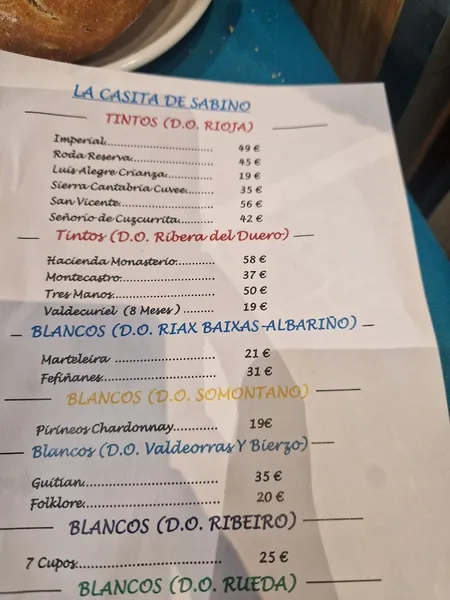 LA CASITA DE SABINO
TINTOS (D.O. RIOJA)
Imperial 49 €
Roda Reserva 45 €
Luis Alegre Crianza 19 €
Sierra Cantabria Cuvee 35 €
San Vicente 56 €
Señorio de Cuzcurrita 42 €
Tintos (D.O. Ribera del Duero)
Hacienda Monasterio 58 €
Montecastro 37 €
Tres Manos 50 €
Valdecuriel (8 Meses) 19 €
BLANCOS (D.O. RIAX BAIXAS-ALBARIÑO)
Marteleira 21 €
Fefiñanes 31 €
BLANCOS (D.O. SOMONTANO)
Pirineos Chardonnay 19€
Blancos (D.O. Valdeorras Y Bierzo)
Guitian 35 €
Folklore 20 €
BLANCOS (D.O. RIBEIRO)
7 Cupos 25 €
BLANCOS (D.O. RUEDA)